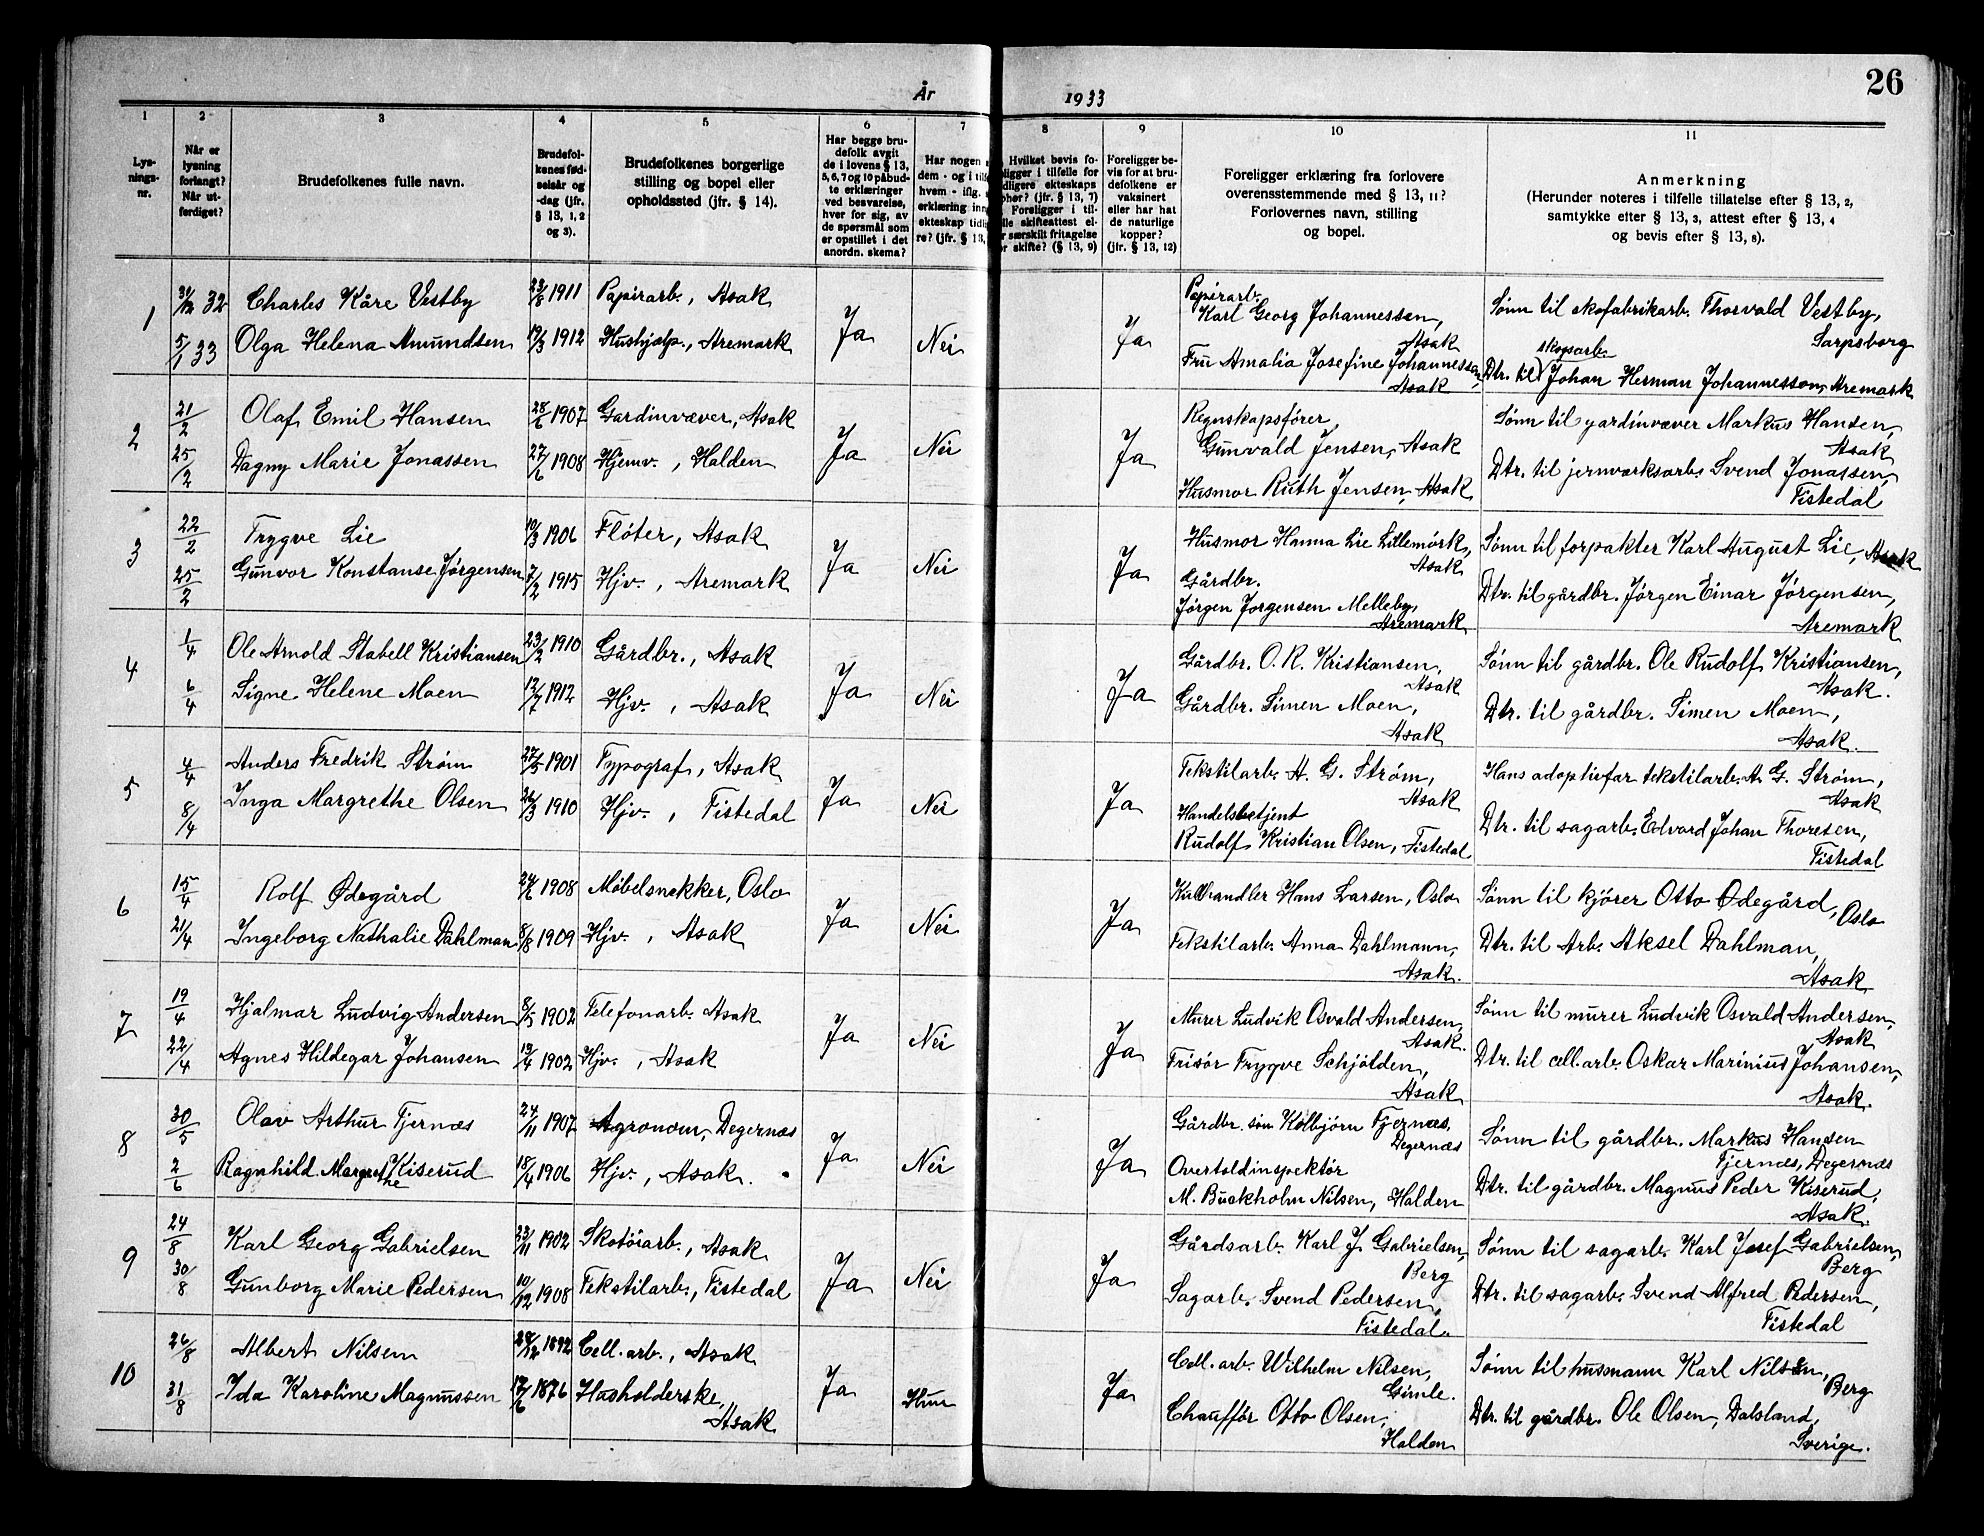 26
År 1933
1 2 3 4 5 6 7 8 9 10 11
Lys-
nings-
nr.
Når er
lysning
forlangt?
Når ut-
ferdiget?
Brudefolkenes fulle navn.
Brudefol-
kenes fød-
selsår og
-dag (jfr.
§ 13, 1, 2
og 3).
Brudefolkenes borgerlige
stilling og bopel eller
opholdssted (jfr. § 14).
Har begge bru-
defolk avgit
de i lovens § 13,
5, 6, 7 og 10 påbud-
te erklæringer
ved besvarelse,
hver for sig, av
de spørsmål som
er opstillet i det
anordn. skema?
Har nogen
dem - og i tilf
hvem - iflg.
erklæring inn
ekteskap tidi
re? (jfr. § 13,
Hvilket bevis fo-
ligger i tilfelle for
dligere ekteskaps
phør? (jfr. § 13, 7)
Foreligger i til-
lle skifteattest el-
r særskilt fritagelse
r skifte? (§ 13, 9)
Foreligger be-
vis for at bru-
defolkene er
vaksinert
eller har hat
de naturlige
kopper?
(jfr. § 13, 12)
Foreligger erklæring fra forlovere
overensstemmende med § 13, 11?
Forlovernes navn, stilling
og bopel.
Anmerkning
(Herunder noteres i tilfelle tillatelse efter § 13, 2,
samtykke efter § 13, 3, attest efter § 13, 4
og bevis efter § 13, 8).
1
31/12 32 Charles Kåre Vestby 23/8 1911 Papirarb., Asak
5/1 33 Olga Helena Amundsen 19/3 1912 Hushjelp., Aremark
Ja Nei Ja
Papirarb.
Karl Georg Johannessen,
Asak
Fru Amalia Josefine Johannessen,
Asak
Sønn til skofabrikarb. Thorvald Vestby,
Sarpsborg
skogsarb.
Dtr. til Johan Herman Johannesson, Aremark
2
21/2 Olaf Emil Hansen 1907 Gardinvæver, Asak
25/2 Dagny Marie Jonassen 27/6 1908 Hjemv., Halden
Ja Nei Ja
Regnskapsfører
Gunvald Jensen, Asak
Husmor Ruth Jensen, Asak
Sønn til gardinvæver Markus Hansen,
Asak
Dtr. til jernværksarb. Svend Jonassen,
Tistedal
3
22/2 Trygve Lie 10/3 1906 Fløter, Asak
25/2 Gunvor Konstanse Jørgensen 7/2 1915 Hjv., Aremark
Ja Nei Ja
Husmor Hanna Lie Lillemørk,
Asak
Gårdbr.
Jørgen Jorgensen Melleby,
Aremark
Sønn til forpakter Karl August Lie, Asak
Dtr. til gårdbr. Jørgen Einar Jørgensen,
Aremark
4
1/4 Ole Arnold Stabell Kristiansen 23/2 1910 Gårdbr., Asak
6/4 Signe Helene Moen 12/7 1912 Hjv., Asak
Ja Nei Ja
Gårdbr. O. R. Kristiansen,
Asak
Gårdbr. Simen Moen,
Asak
Sønn til gårdbr. Ole Rudolf Kristiansen,
Asak.
Dtr. til gårdbr. Simen Moen,
Asak.
5
4/4 Anders Fredrik Strøm 27/5 1901 Typograf, Asak
8/4 Inga Margrethe Olsen 26/3 1910 Hjv., Tistedal
Ja Nei Ja
Tekstilarb. A. G. Strøm,
Asak
Handelsbetjent
Rudolf Kristian Olsen, Tistedal
Hans adoptivfar tekstilarb. A. G. Strøm,
Asak
Dtr. til sagarb. Edvard Johan Thoresen,
Tistedal
6
15/4 Rolf Ødegård 1908 Møbelsnekker, Oslo
21/4 Ingeborg Nathalie Dahlman 8/8 1909 Hjv., Asak
Ja Nei Ja
Kullhandler Hans Larsen, Oslo
Tekstilarb. Anna Dahlmann,
Asak.
Sønn til kjører Otto Ødegård,
Oslo
Dtr. til Arb. Aksel Dahlman,
Asak
7
19/4 Hjalmar Ludvig Andersen 8/5 1902 Telefonarb. Asak
22/4 Agnes Hildegar Johansen 13/4 1902 Hjv., Asak
Ja Nei Ja
Murer Ludvik Osvald Andersen,
Asak.
Frisør Trygve Schjølden,
Asak
Sønn til murer Ludvik Osvald Andersen,
Asak
Dtr. til cell.arb. Oskar Marinius Johansen,
Asak.
8
30/5 Olav Arthur Tjernæs 24/11 1907 Agronom, Degernæs
2/6 Ragnhild Margrethe Kiserud 18/4 1906 Hjv., Asak.
Ja Nei Ja
Gårdbr. søn Kolbjørn Tjernæs,
Degernæs
Overtoldinspektør
M. Buckholm Nilsen, Halden
Sønn til gårdbr. Markus Hansen
Tjernæs, Degernæs
Dtr. til gårdbr. Magnus Peder Kiserud,
Asak.
9
24/8 Karl Georg Gabrielsen 23/11 1902 Skotøiarb., Asak
30/8 Gunborg Marie Pedersen 10/12 1908 Tekstilarb., Tistedal
Ja Nei Ja
Gårdsarb. Karl J. Gabrielsen,
Berg
Sagarb. Svend Pedersen,
Tistedal.
Sønn til sagarb. Karl Josef Gabrielsen,
Berg
Dtr. til sagarb. Svend Alfred Pedersen,
Tistedal
10
26/8 Albert Nilsen 1892 Cell. arb., Asak
31/8 Ida Karoline Magnussen 17/6 1876 Husholderske,
Asak
Ja Hun Ja
Cell. arb. Wilhelm Nilsen,
Gimle.
Chauffør Otto Olsen,
Halden
Sønn til husmann Karl Nilsen,
Berg
Dtr. til gårdbr. Ole Olsen, Dalsland,
Sverige.